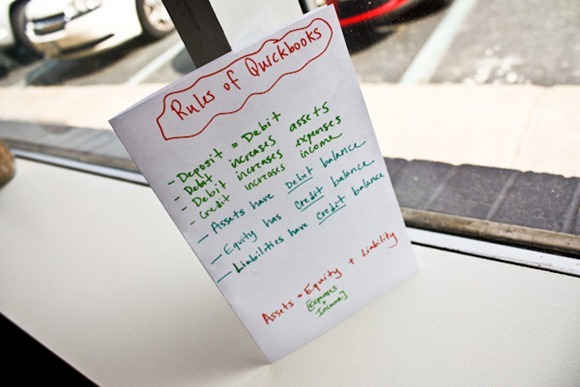 Rules of Quickbooks
- Deposit = Debit
- Debit increases assets
- Debit increases expenses
- Credit increases income
- Assets have Debit balance
- Equity has Credit balance
- Liabilities have Credit balance
Assets = Equity + Liability
[Expenses
+
Income]